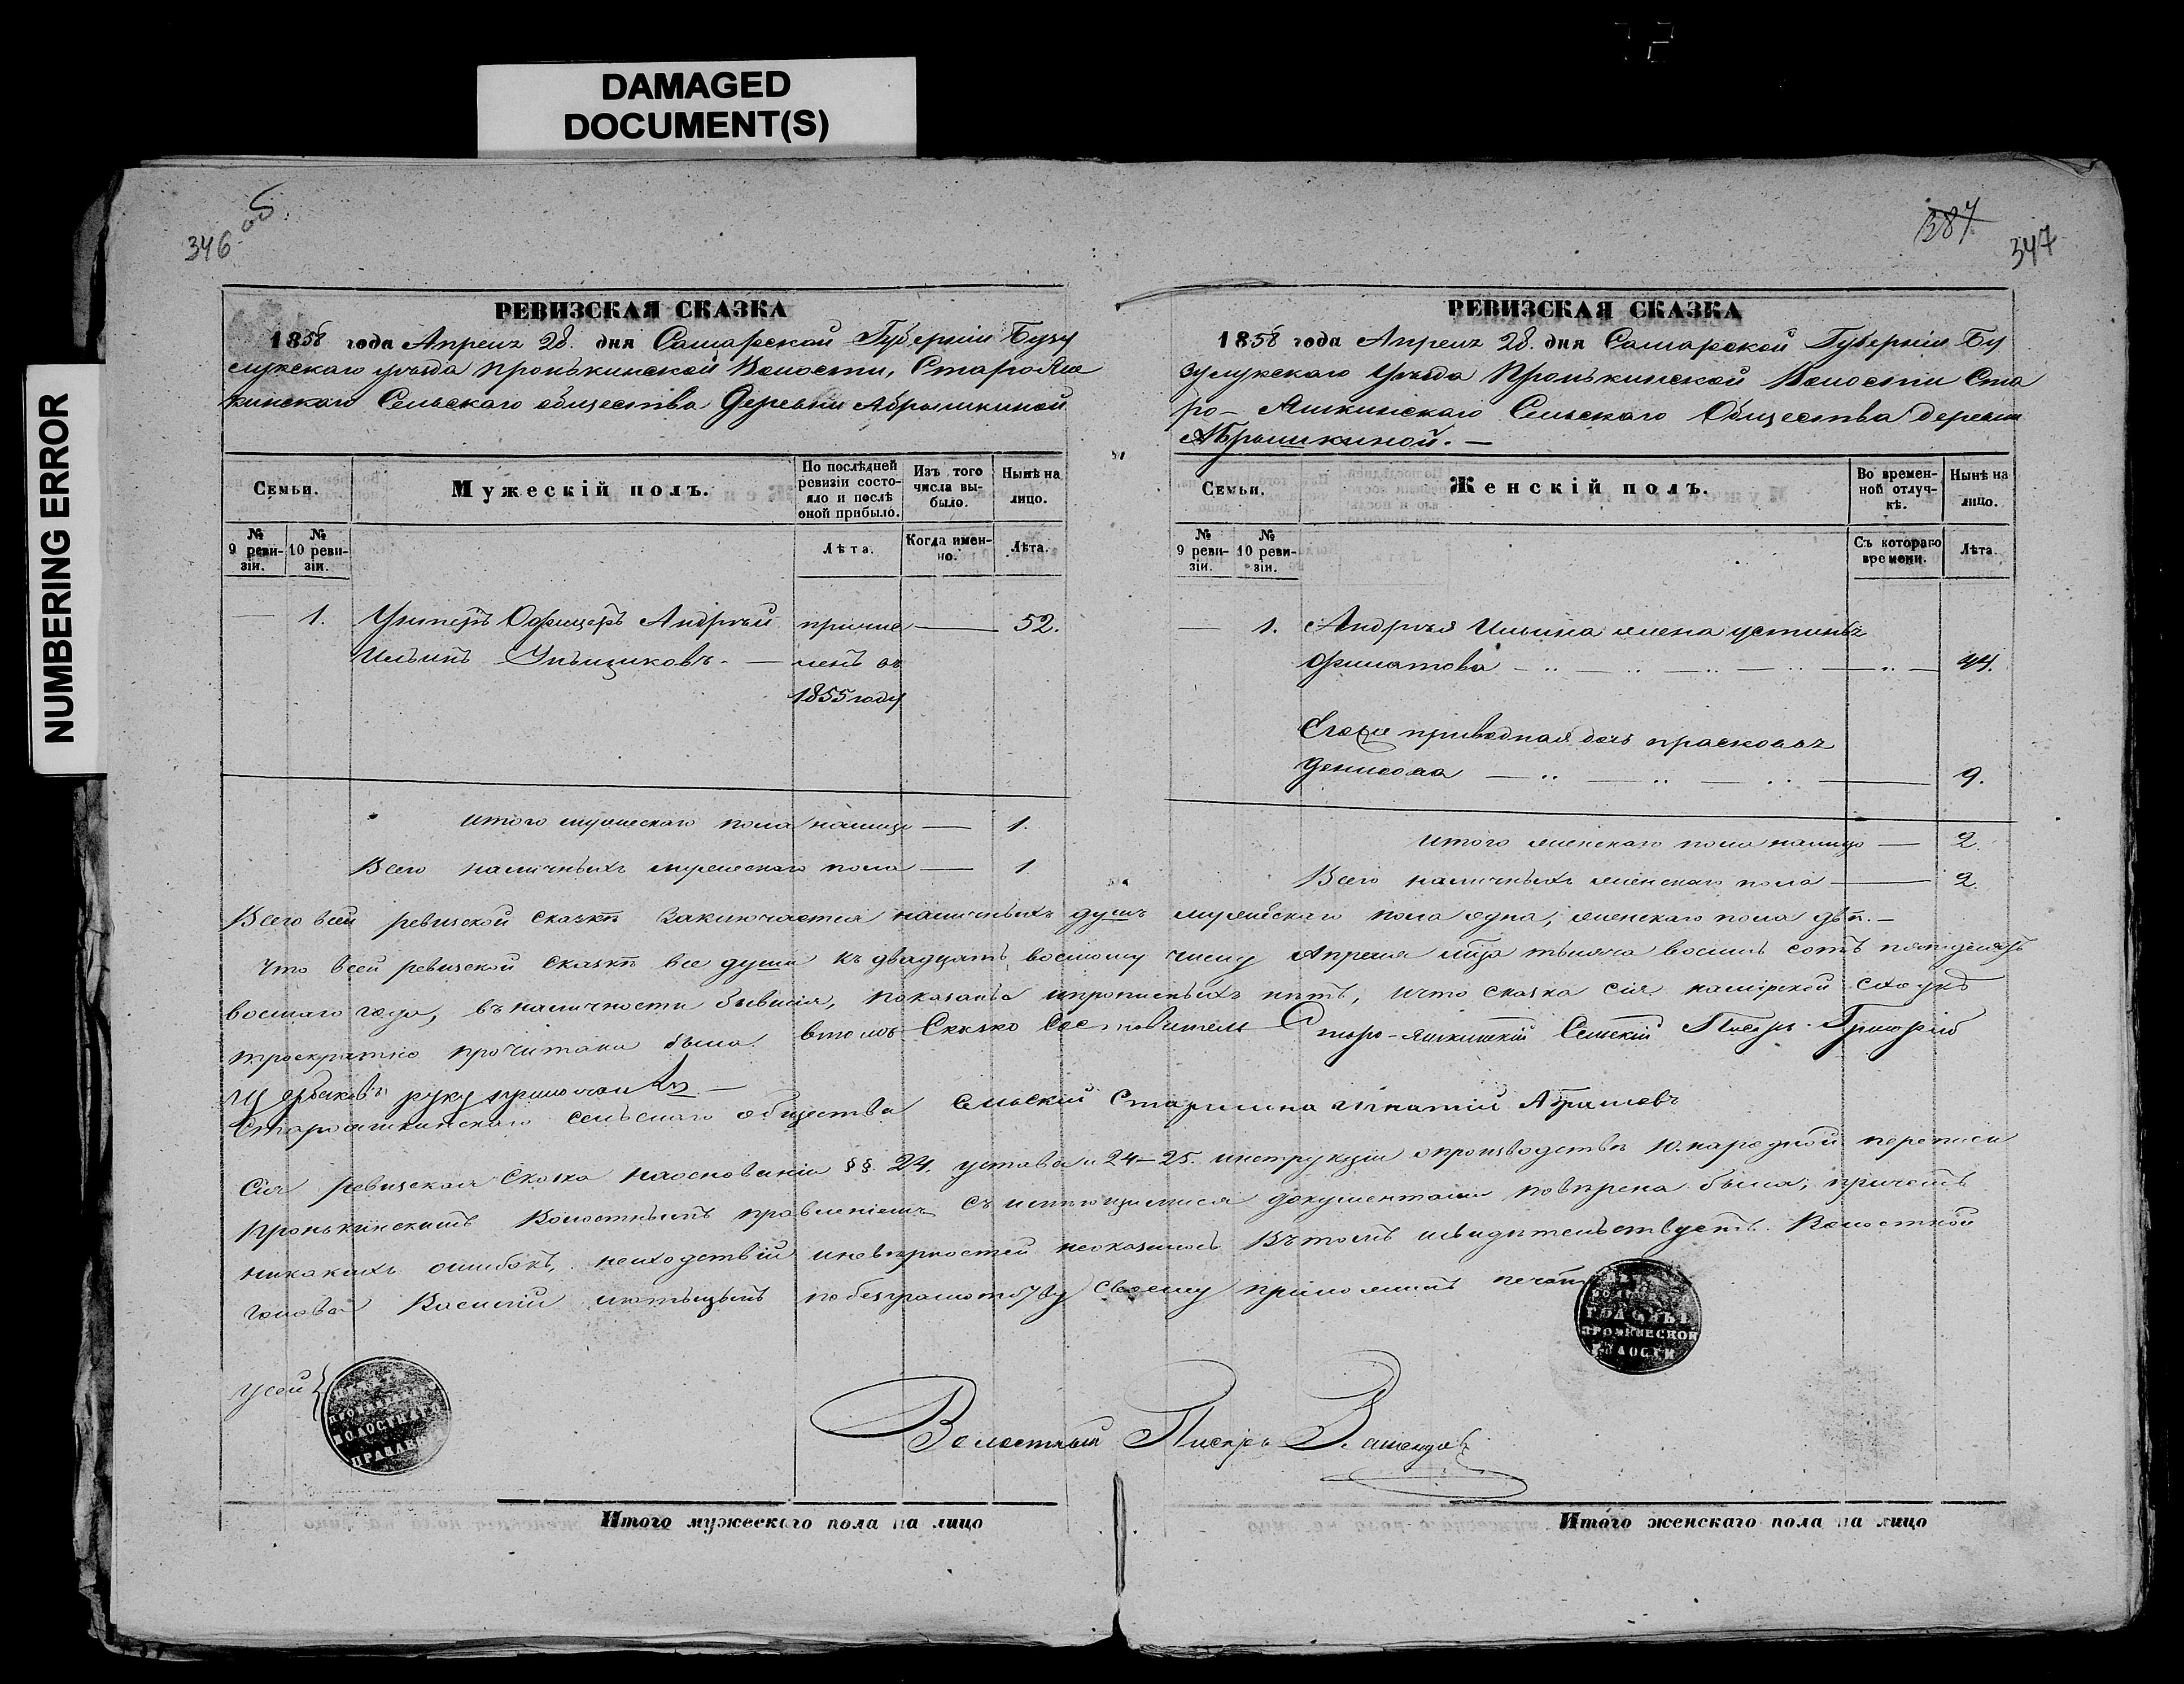 DAMAGED
DOCUMENT(S)
NUMBERING ERROR
346 об.
387
347
РЕВИЗСКАЯ СКАЗКА
1858 года Апреля 28. дня Самарской Губерніи Бузу
лукскаго уѣзда Пронькинской Волости, Старо Яш
кинскаго Сельскаго общества Деревни Абрышкиной
Семьи.
Мужескій полъ.
По послѣдней ревизіи состояло и послѣ оной прибыло.
Изъ того числа выбыло.
Нынѣ на лицо.
№ 9 ревизіи.
№ 10 ревизіи.
Лѣта.
Когда именно.
Лѣта.
1. Унтеръ Офицеръ Андрѣй причис 52.
Ильинъ ленъ въ
1855 году
итого мужескаго пола налицо 1.
Всего наличныхъ мужескаго пола 1
РЕВИЗСКАЯ СКАЗКА
1858 года Апреля 28. дня Самарской Губерніи Бу
зулукскаго Уѣзда Пронькинской Волости Ста
ро-Яшкинскаго Сельскаго Общества деревни
Абрышкиной.
Семьи.
Женскій полъ.
Во временной отлучкѣ.
Нынѣ на лицо.
№ 9 ревизіи.
№ 10 ревизіи.
Съ котораго времени.
Лѣта.
1. Андрѣя Ильина жена устинья
филатова 44.
Егоже приводная дочь прасковья
Денисова 9.
итого женскаго пола налицо 2.
Всего наличныхъ женскаго пола 2.
Всего всей ревизской сказкѣ заключается наличныхъ душъ мужескаго пола одна, женскаго пола двѣ.
Что всей ревизской сказкѣ все души къ двадцать восмому числу Апреля мца тысяча восимь сотъ пятидесятъ
восмаго года, въ наличности бывшія, показаны ипрописныхъ нѣтъ, ичто сказка сія намірской сходкѣ
троекратно прочитана была. втомъ Сказко Составитель Старо-яшкинскій Сельскій Писарь Григорій
руку приложилъ
Старояшкинскаго сельскаго общества Сельскій Старшина игнатій Абрашевъ
Сія ревизская Сказка наосновании §§. 24. устава и 24-25. инструкціи опроизводствѣ 10. народной переписи
Пронькинскимъ Волостнымъ правленіемъ съ имѣющимися документами повѣрена была; причемъ
никакихъ ошибокъ, несходствій иневѣрностей неоказалось Въ томъ свидѣтельствуетъ. Волостной
голова Василій по безграмотству своему приложилъ печать
ВОЛОСТНАГО
ПРАВЛЕН
ГОЛОВЫ
ПРОНКИНСКОЙ
ВОЛОСТИ
Волостный Писарь
Итого мужескаго пола на лицо
Итого женскаго пола на лицо